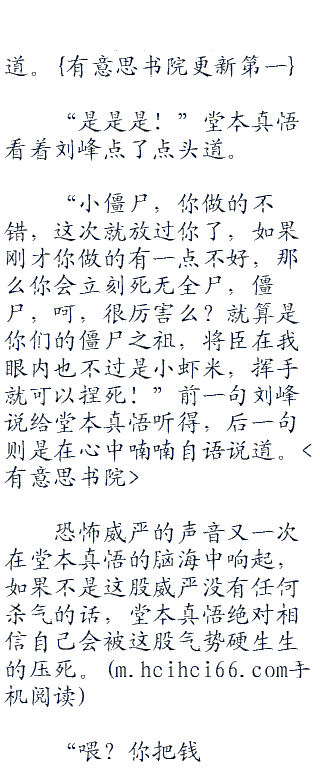 道。{有意思书院更新第一}
“是是是！”堂本真悟
看着刘峰点了点头道。
“小僵尸，你做的不
错，这次就放过你了，如果
刚才你做的有一点不好，那
么你会立刻死无全尸，僵
尸，呵，很厉害么？就算是
你们的僵尸之祖，将臣在我
眼内也不过是小虾米，挥手
就可以捏死！”前一句刘峰
说给堂本真悟听得，后一句
则是在心中喃喃自语说道。<
有意思书院>
恐怖威严的声音又一次
在堂本真悟的脑海中响起，
如果不是这股威严没有任何
杀气的话，堂本真悟绝对相
信自己会被这股气势硬生生
的压死。(m.hcihci66.com手
机阅读)
“喂？你把钱